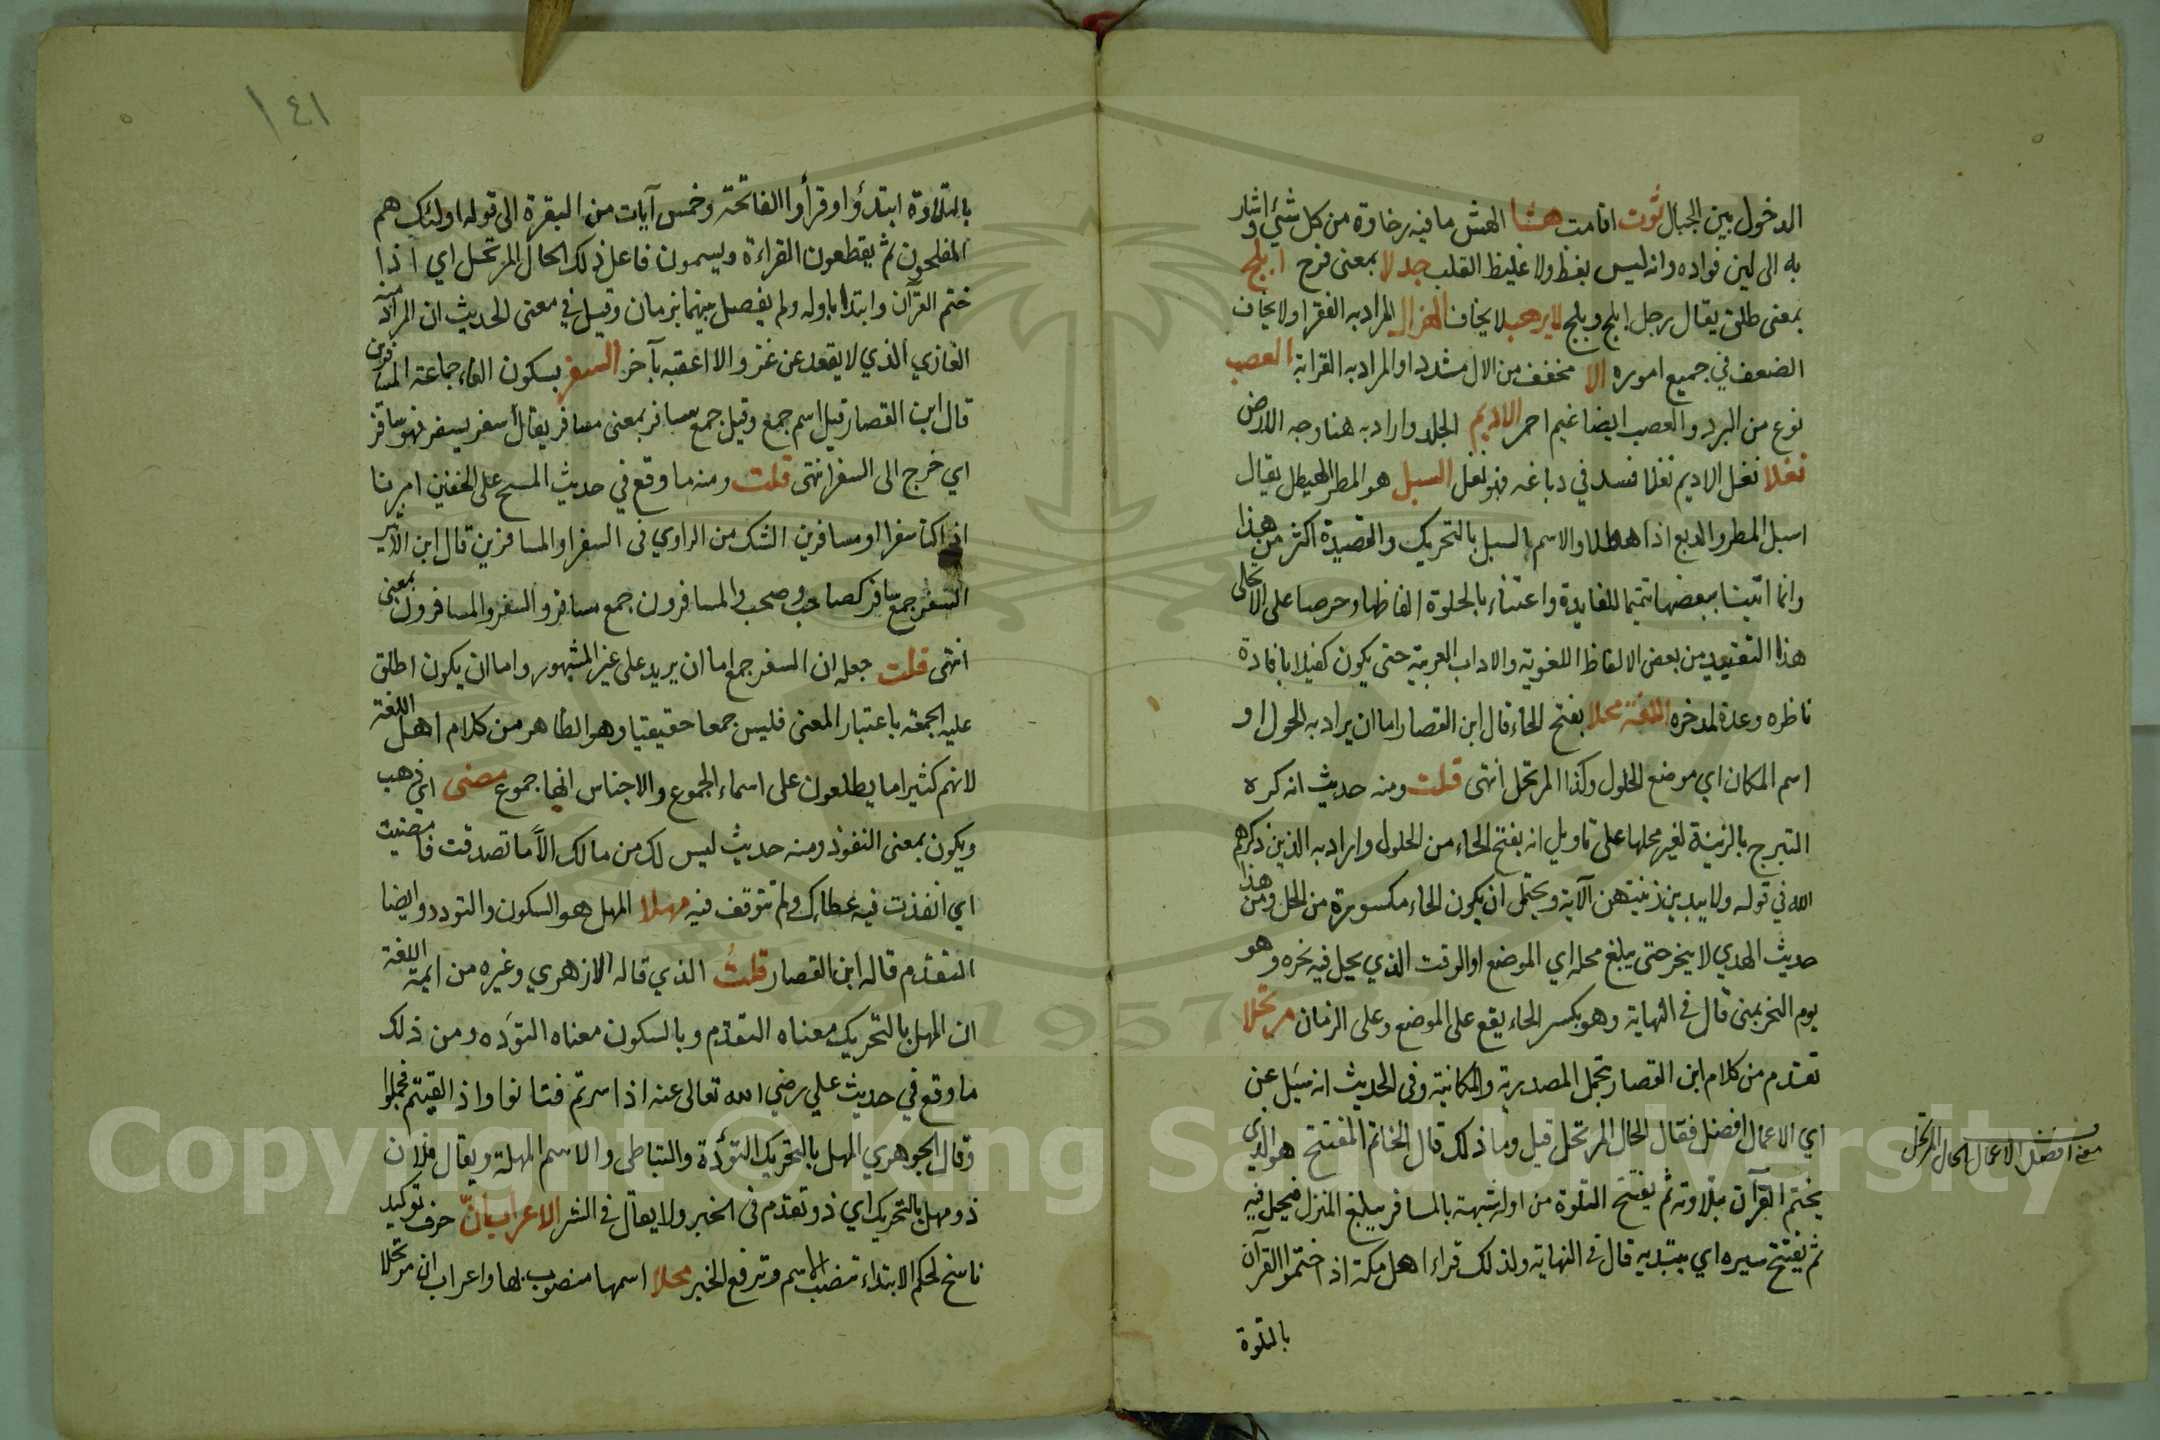 الدخول بين الجبال ثوت اقامت هشا الهش ما فيه رخاوة من كل شئ واشار
به الى لين فواده وانه ليس بفظ ولا غليظ القلب جدلا بمعنى فرح ابلج
بمعنى طلق يقال رجل ابلج وبلج لا يرهب لا يخاف الهزال المراد به الفقر اولا يخاف
الضعف في جميع اموره الا مخفف من الال مشددا والمراد به القرابة العصب
نوع من البرد والعصب ايضا غيم احمر الاديم الجلد واراد به هنا وجه الارض
نغلا نغل الاديم نغلا فسد في دباغه فهو نغل السبل هو المطر الهيطل يقال
اسبل المطر والدمع اذا هطلا والاسم بالسبل بالتحريك والقصيدة اكثر من هذا
وانما اتينا ببعضها تتميما للفايدة واعتناء بالحلوة الفاظها وحرصا على الا
هذا التقييد من بعض الالفاظ اللغوية والاداب العربية حتى يكون كفيلا بافادة
ناظره وعدة لمدخره اللغة محلا بفتح الحاء قال ابن القصار اما ان يراد به الحول او
اسم المكان اي موضع الحلول وكذا المرتحل انتهى قلت ومنه حديث انه كره
التبرج بالزينة لغير محلها على تاويل انه بفتح الحاء من الحلول واراد به الذين ذكرهم
الله في قوله ولا يبدين زينتهن الآية ويحتمل ان يكون الحاء مكسورة من الحل ومن هذا
حديث الهدي لا ينحر حتى يبلغ محله اي الموضع او الوقت الذي يحل فيه نحره وهو
يوم النحر بمنى قال في النهاية وهو بكسر الحاء يقع على الموضع وعلى الزمان مرتحلا
تقدم من كلام ابن القصار تحمل المصدرية والمكانية وفي الحديث انه سئل عن
اي الاعمال افضل فقال الحال المرتحل قيل وما ذلك قال الخاتم المفتتح هو الذي
يختم القرآن بتلاوته ثم يفتتح التلوة من اوله شبهه بالمسافر يبلغ المنزل فيحل فيه
ثم يفتتح سيره اي يبتديه قال في النهاية ولذلك قراء اهل مكة اذا ختموا القرآن
بالتلوة
افضل الاعمال الحال المرتحل
١٤١
بالتلاوة ابتدؤا وقرأوا الفاتحة وخمس آيات من البقرة الى قوله اولئك هم
المفلحون ثم يقطعون القراءة ويسمون فاعل ذلك الحال المرتحل اي اذا
ختم القرآن وابتدا باوله ولم يفصل بينهما بزمان وقيل في معنى الحديث ان المراد منه
الغازي الذي لا يقعد عن غزو الا اعقبه بآخر السفر بسكون الفاء جماعة المسافرين
قال ابن القصار قيل اسم جمع وقيل جمع سافر بمعنى مسافر يقال سفر يسفر فهو سافر
اي خرج الى السفر انتهى قلت ومنه ما وقع في حديث المسح على الخفين امرنا
اذا كنا سفرا او مسافرين الشك من الراوي في السفر او المسافرين قال ابن الاثير
السفر جمع سافر كصاحب وصحب والمسافرون جمع مسافر والسفر والمسافرون بمعنى
انتهى قلت جعله ان السفر جمع اما ان يريد على غير المشهور واما ان يكون اطلق
عليه الجمعة باعتبار المعنى فليس جمعا حقيقيا وهو الظاهر من كلام اهل اللغة
لانهم كثيرا ما يطلعون على اسماء الجموع والاجناس انها جموع مضى اي ذهب
ويكون بمعنى النفوذ ومنه حديث ليس لك من مالك الا ما تصدقت فامضيت
اي انفذت فيه عطاك ولم تتوقف فيه مهلا المهل هو السكون والتودد وايضا
التقدم قاله ابن القصار قلت الذي قاله الازهري وغيره من ايمة اللغة
ان المهل بالتحريك معناه التقدم وبالسكون معناه التؤده ومن ذلك
ما وقع في حديث علي رضي الله تعالى عنه اذا سرتم فتانوا واذا لقيتم فحملوا
وقال الجوهري المهل بالتحريك التؤدة والتباطى والاسم المهلة ويقال فلان
ذو مهل بالتحريك اي ذو تقدم في الخير ولا يقال في الشر الاعراب ان حرف توكيد
ناسخ لحكم الابتداء تنصب الاسم وترفع الخبر محلا اسمها منصوب بها واعراب ان مرتحلا